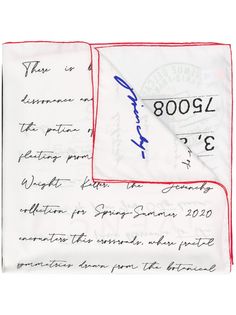 There is b
dissonance an
the patina o
fleeting prom
Waight Keller, the Givenchy
collection for Spring-Summer 2020
encounters this crossroads, where fractal
symmetries drawn from the botanical
Givenchy-
75008
3,